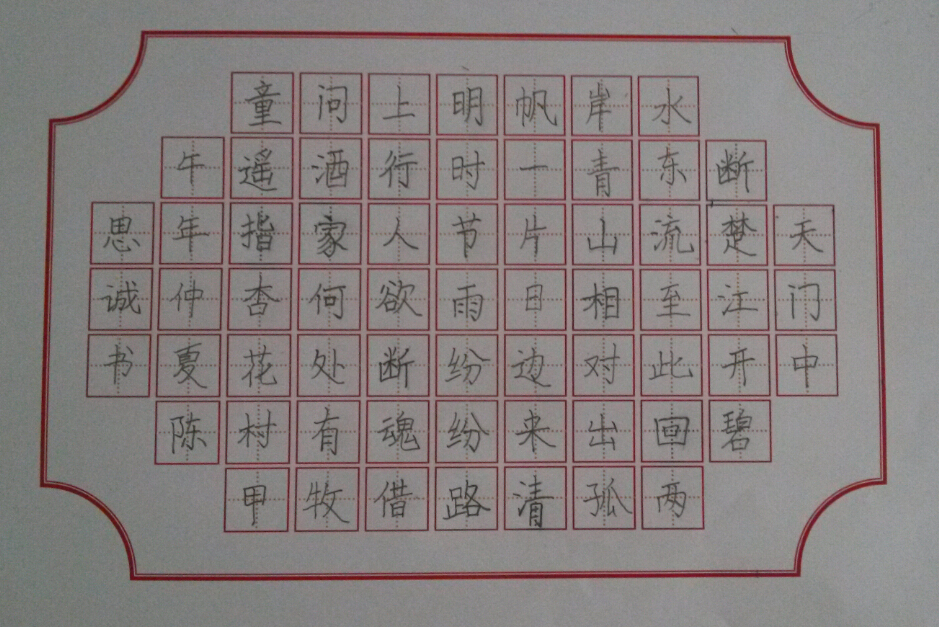 天门中
断楚江开碧
水东流至此回两
岸青山相对出孤
帆一片日边来清
明时节雨纷纷路
上行人欲断魂借
问酒家何处有牧
童遥指杏花村甲
午年仲夏陈
思诚书